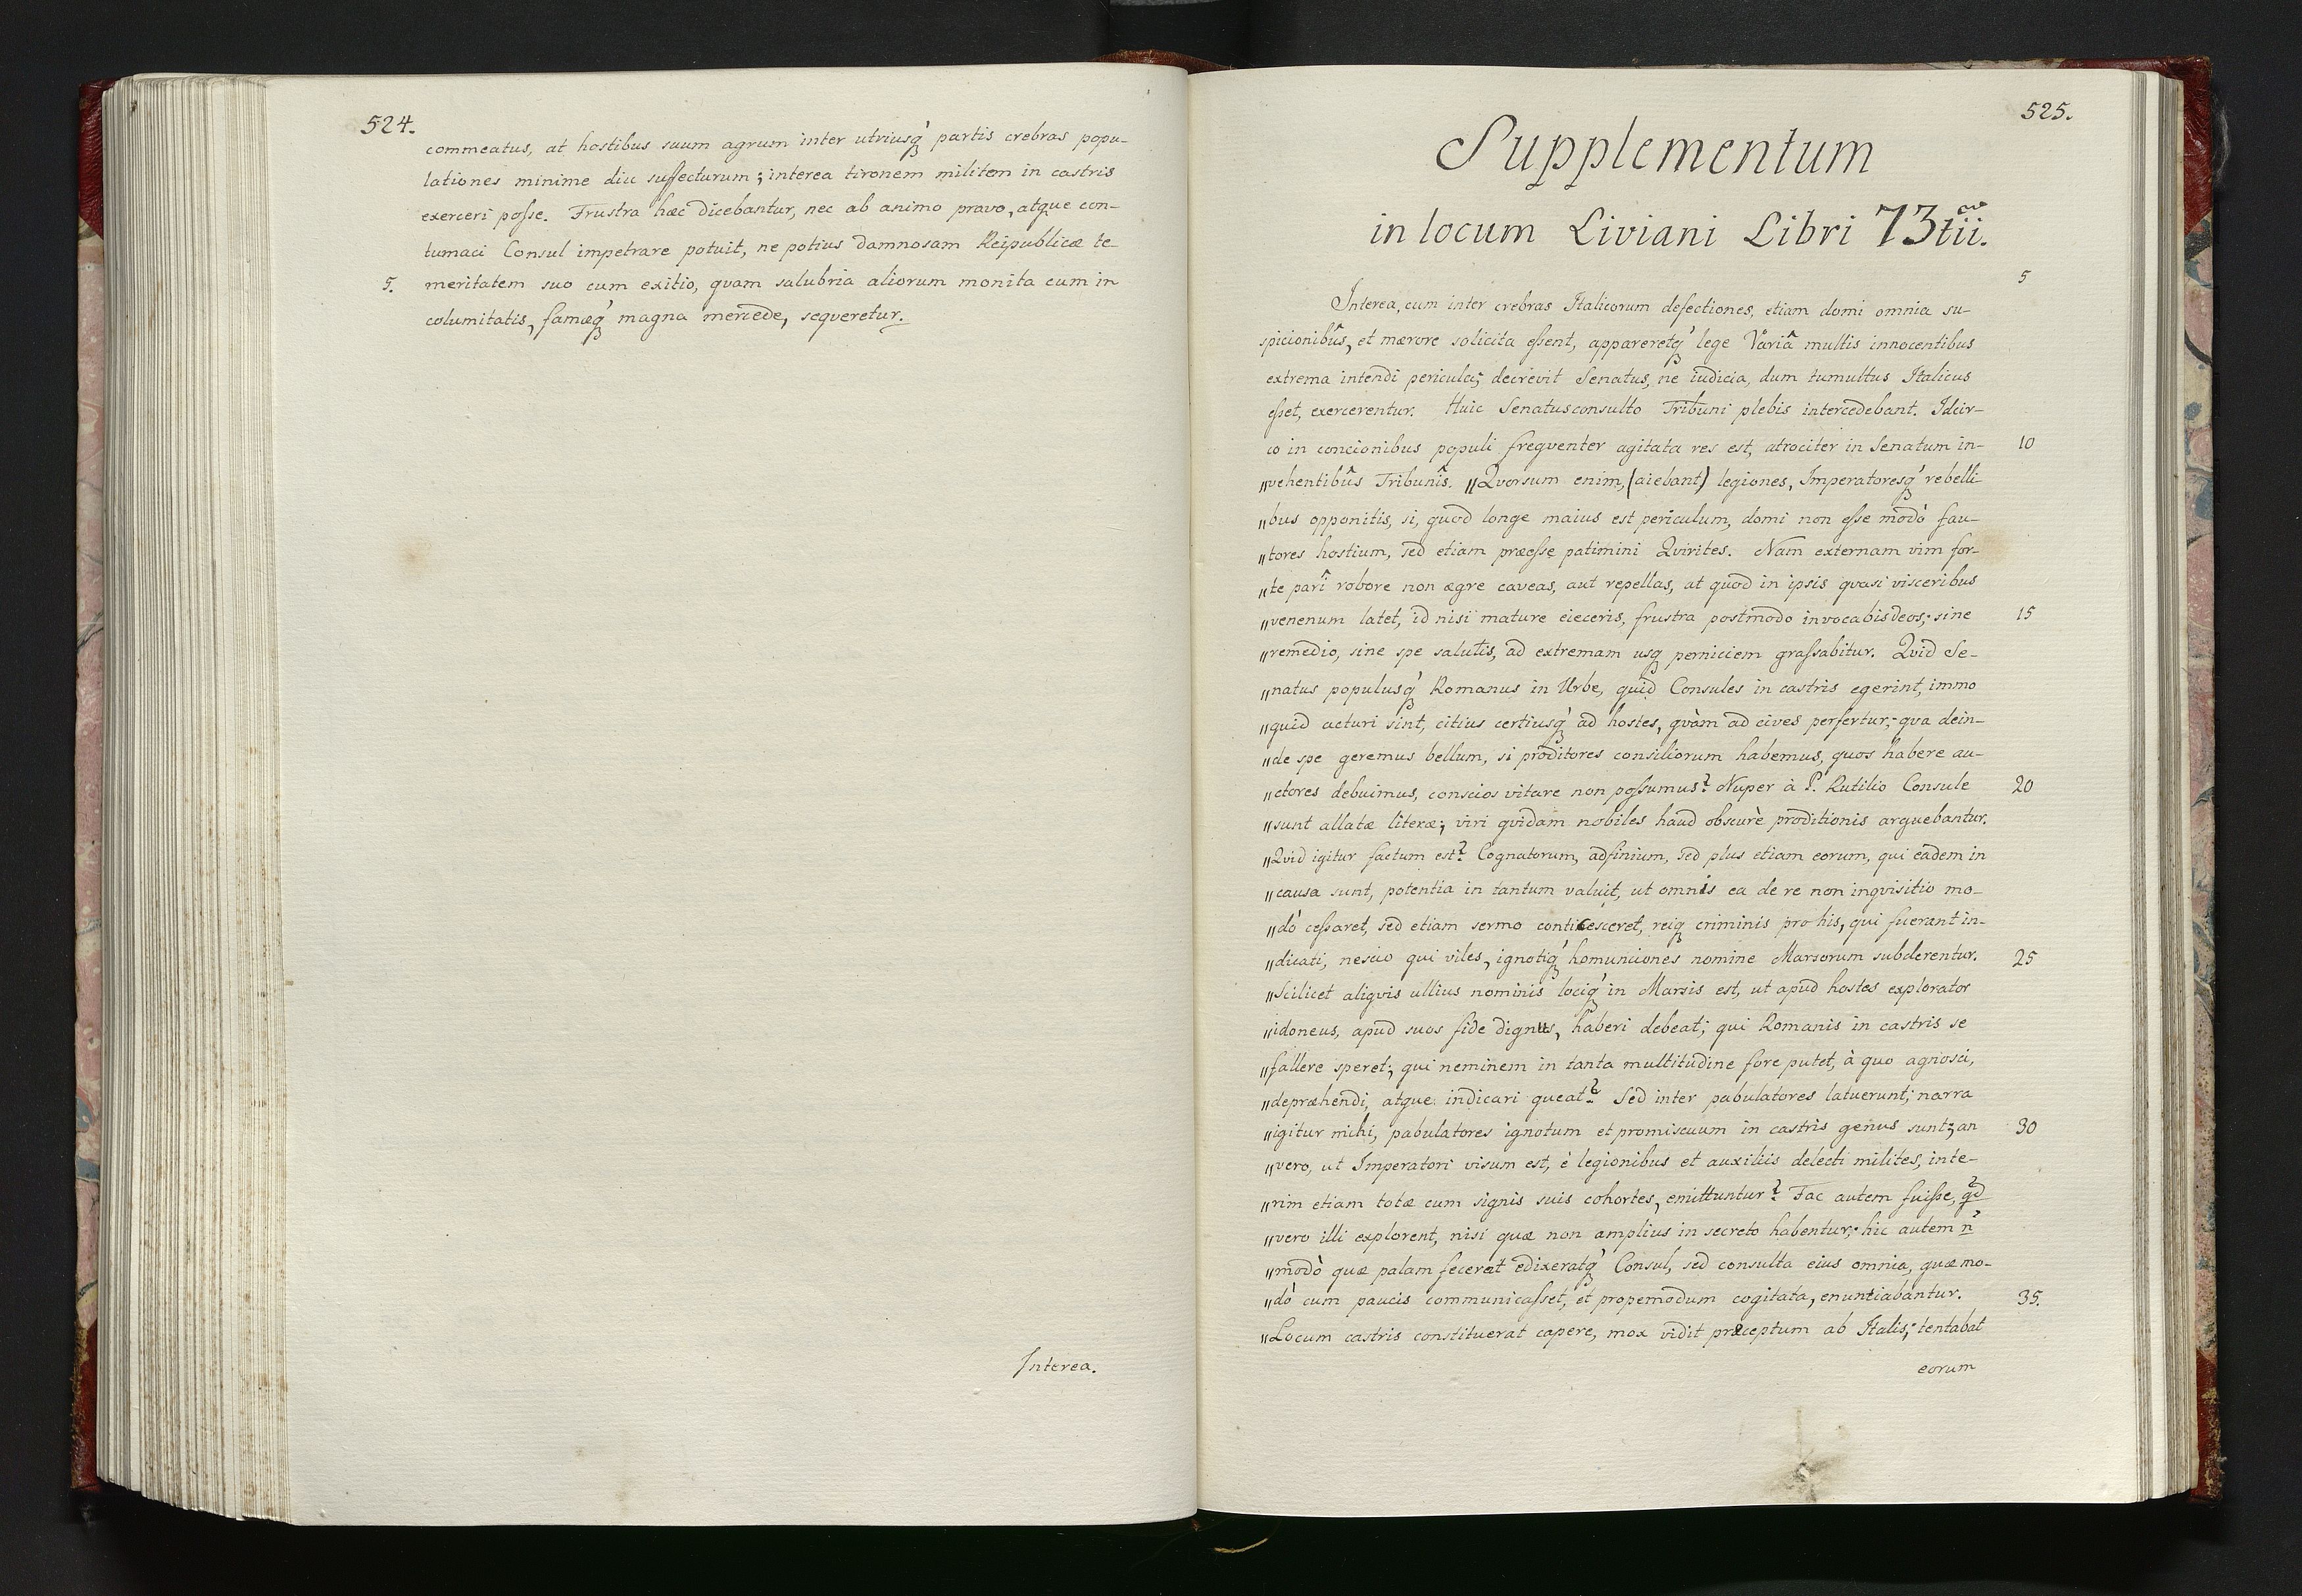 524.
commeatus, at hostibus suum agrum inter utriusq́ partis crebras popu-
lationes minime diu suffecturum; interea tironem militem in castris
exerceri posse. Frustra hæc dicebantur, nec ab animo pravo, atque con-
tumaci Consul impetrare potuit, ne potius damnosam Reipublicæ te-
5. meritatem suo cum exitio, quam salubria aliorum monita cum in
columitatis, famæq́ magna mercede, sequeretur.
Interea.
525.
Supplementum
in locum Liviani Libri 73tii.
5
Interea, cum inter crebras Italicorum defectiones, etiam domi omnia su-
spicionibûs, et mærore solicita essent, appareretq́ lege Variâ multis innocentibus
extrema intendi pericula; decrevit Senatus, ne iudicia, dum tumultus Italicus
esset, exercerentur. Huic Senatusconsulto Tribuni plebis intercedebant. Idcir-
co in concionibus populi freqventer agitata res est, atrociter in Senatum in- 10
„vehentibûs Tribunîs. „Qvorsum enim, (aiebant) legiones, Imperatoresq́ rebelli-
„bus opponitis, si, quod longe maius est periculum, domi non esse modò fau-
„tores hostium, sed etiam præesse patimini Qvirites. Nam externam vim for-
„te parî robore non ægre caveas, aut repellas, at quod in ipsis qvasi visceribus
„venenum latet, id nisi mature eieceris, frustra postmodo invocabis deos; sine 15
„remedio, sine spe salutis, ad extremam usq perniciem grassabitur. Qvid Se-
„natus populusq́ Romanus in Urbe, quid Consules in castris egerint, immo
„quid acturi sint, citius certiusq́ ad hostes, qvàm ad cives perfertur; qva dein-
„de spe geremus bellum, si proditores consiliorum habemus, quos habere au-
„ctores debuimus, conscios vitare non possumus? Nuper à P. Rutilio Consule 20
„sunt allatæ literæ; viri qvidam nobiles haud obscurè proditionis arguebantur.
„Qvid igitur factum est? Cognatorum, adfinium, sed plus etiam eorum, qui eadem in
„causa sunt, potentia in tantum valuit, ut omnis ea de re non inqvisitio mo-
„dò cessaret, sed etiam sermo conticesceret, reiq criminis pro his, qui fuerant in-
„dicati, nescio qui viles, ignotiq́ homunciones nomine Marsorum subderentur. 25
„Scilicet aliqvis ullius nominis lociq́ in Marsis est, ut apud hostes explorator
„idoneus, apud suos fide dignus, haberi debeat; qui Romanis in castris se
„fallere speret; qui neminem in tanta multitudine fore putet, à quo agnosci,
„depræhendi, atque indicari queat? Sed inter pabulatores latuerunt; narra
„igitur mihi, pabulatores ignotum et promiscuum in castris genus sunt; an 30
„vero, ut Imperatori visum est, è legionibus et auxiliis delecti milites, inte-
„rim etiam totæ cum signis suis cohortes, emittuntur? Fac autem fuisse, qd
„vero illi explorent, nisi quæ non amplius in secreto habentur; hic autem n̄
„modò quæ palam fecerat edixeratq́ Consul, sed consulta eius omnia, quæ mo-
„dò cum paucis communicasset, et propemodum cogitata, enuntiabantur. 35.
„Locum castris constituerat capere, mox vidit præceptum ab Italis; tentabat
eorum